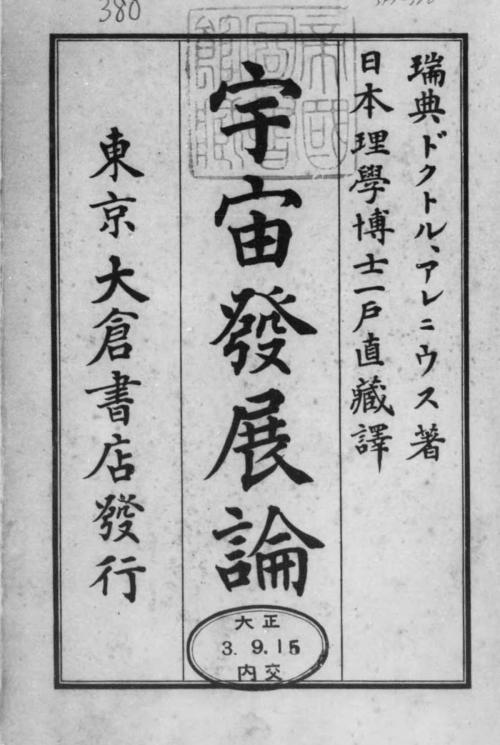 380
瑞典ドクトル、アレニウス著
日本理學博士一戸直藏譯
宇宙發展論
東京大倉書店發行
大正
3.9.15
内交